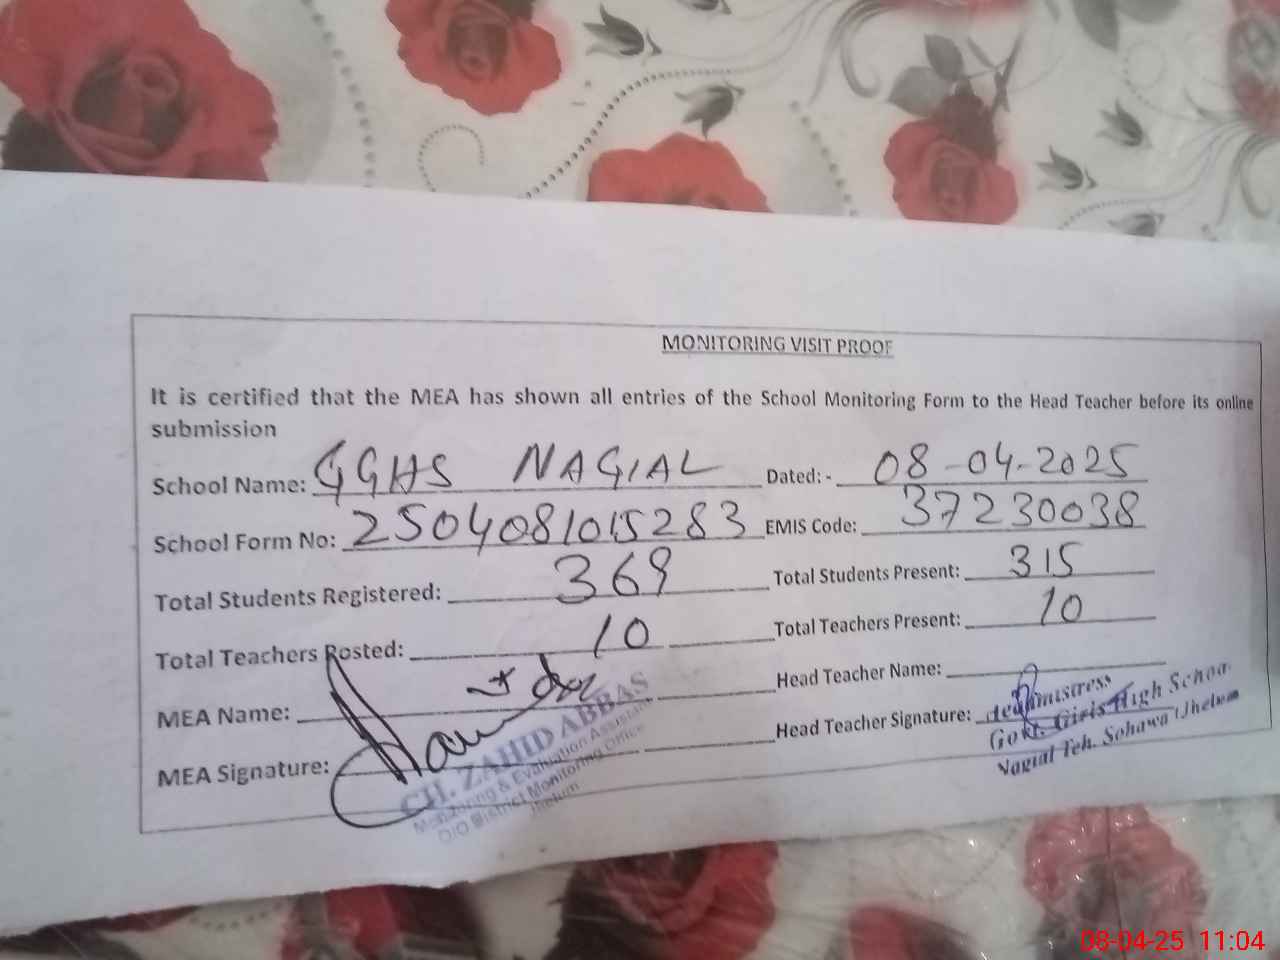 MONITORING VISIT PROOF
It is certified that the MEA has shown all entries of the School Monitoring Form to the Head Teacher before its online
submission
School Name: GGHS NAGIAL Dated: - 08-04-2025
School Form No: 2504081015283 EMIS Code: 37230038
Total Students Registered: 369 Total Students Present: 315
Total Teachers Posted: 10 Total Teachers Present: 10
MEA Name: Head Teacher Name:
MEA Signature: Head Teacher Signature:
CH. ZAHID ABBAS
Monitoring & Evaluation Assistant
O/O District Monitoring Office
Jhelum
Headmistress
Govt. Girls High School
Nagial Teh. Sohawa (Jhelum
08-04-25 11:04